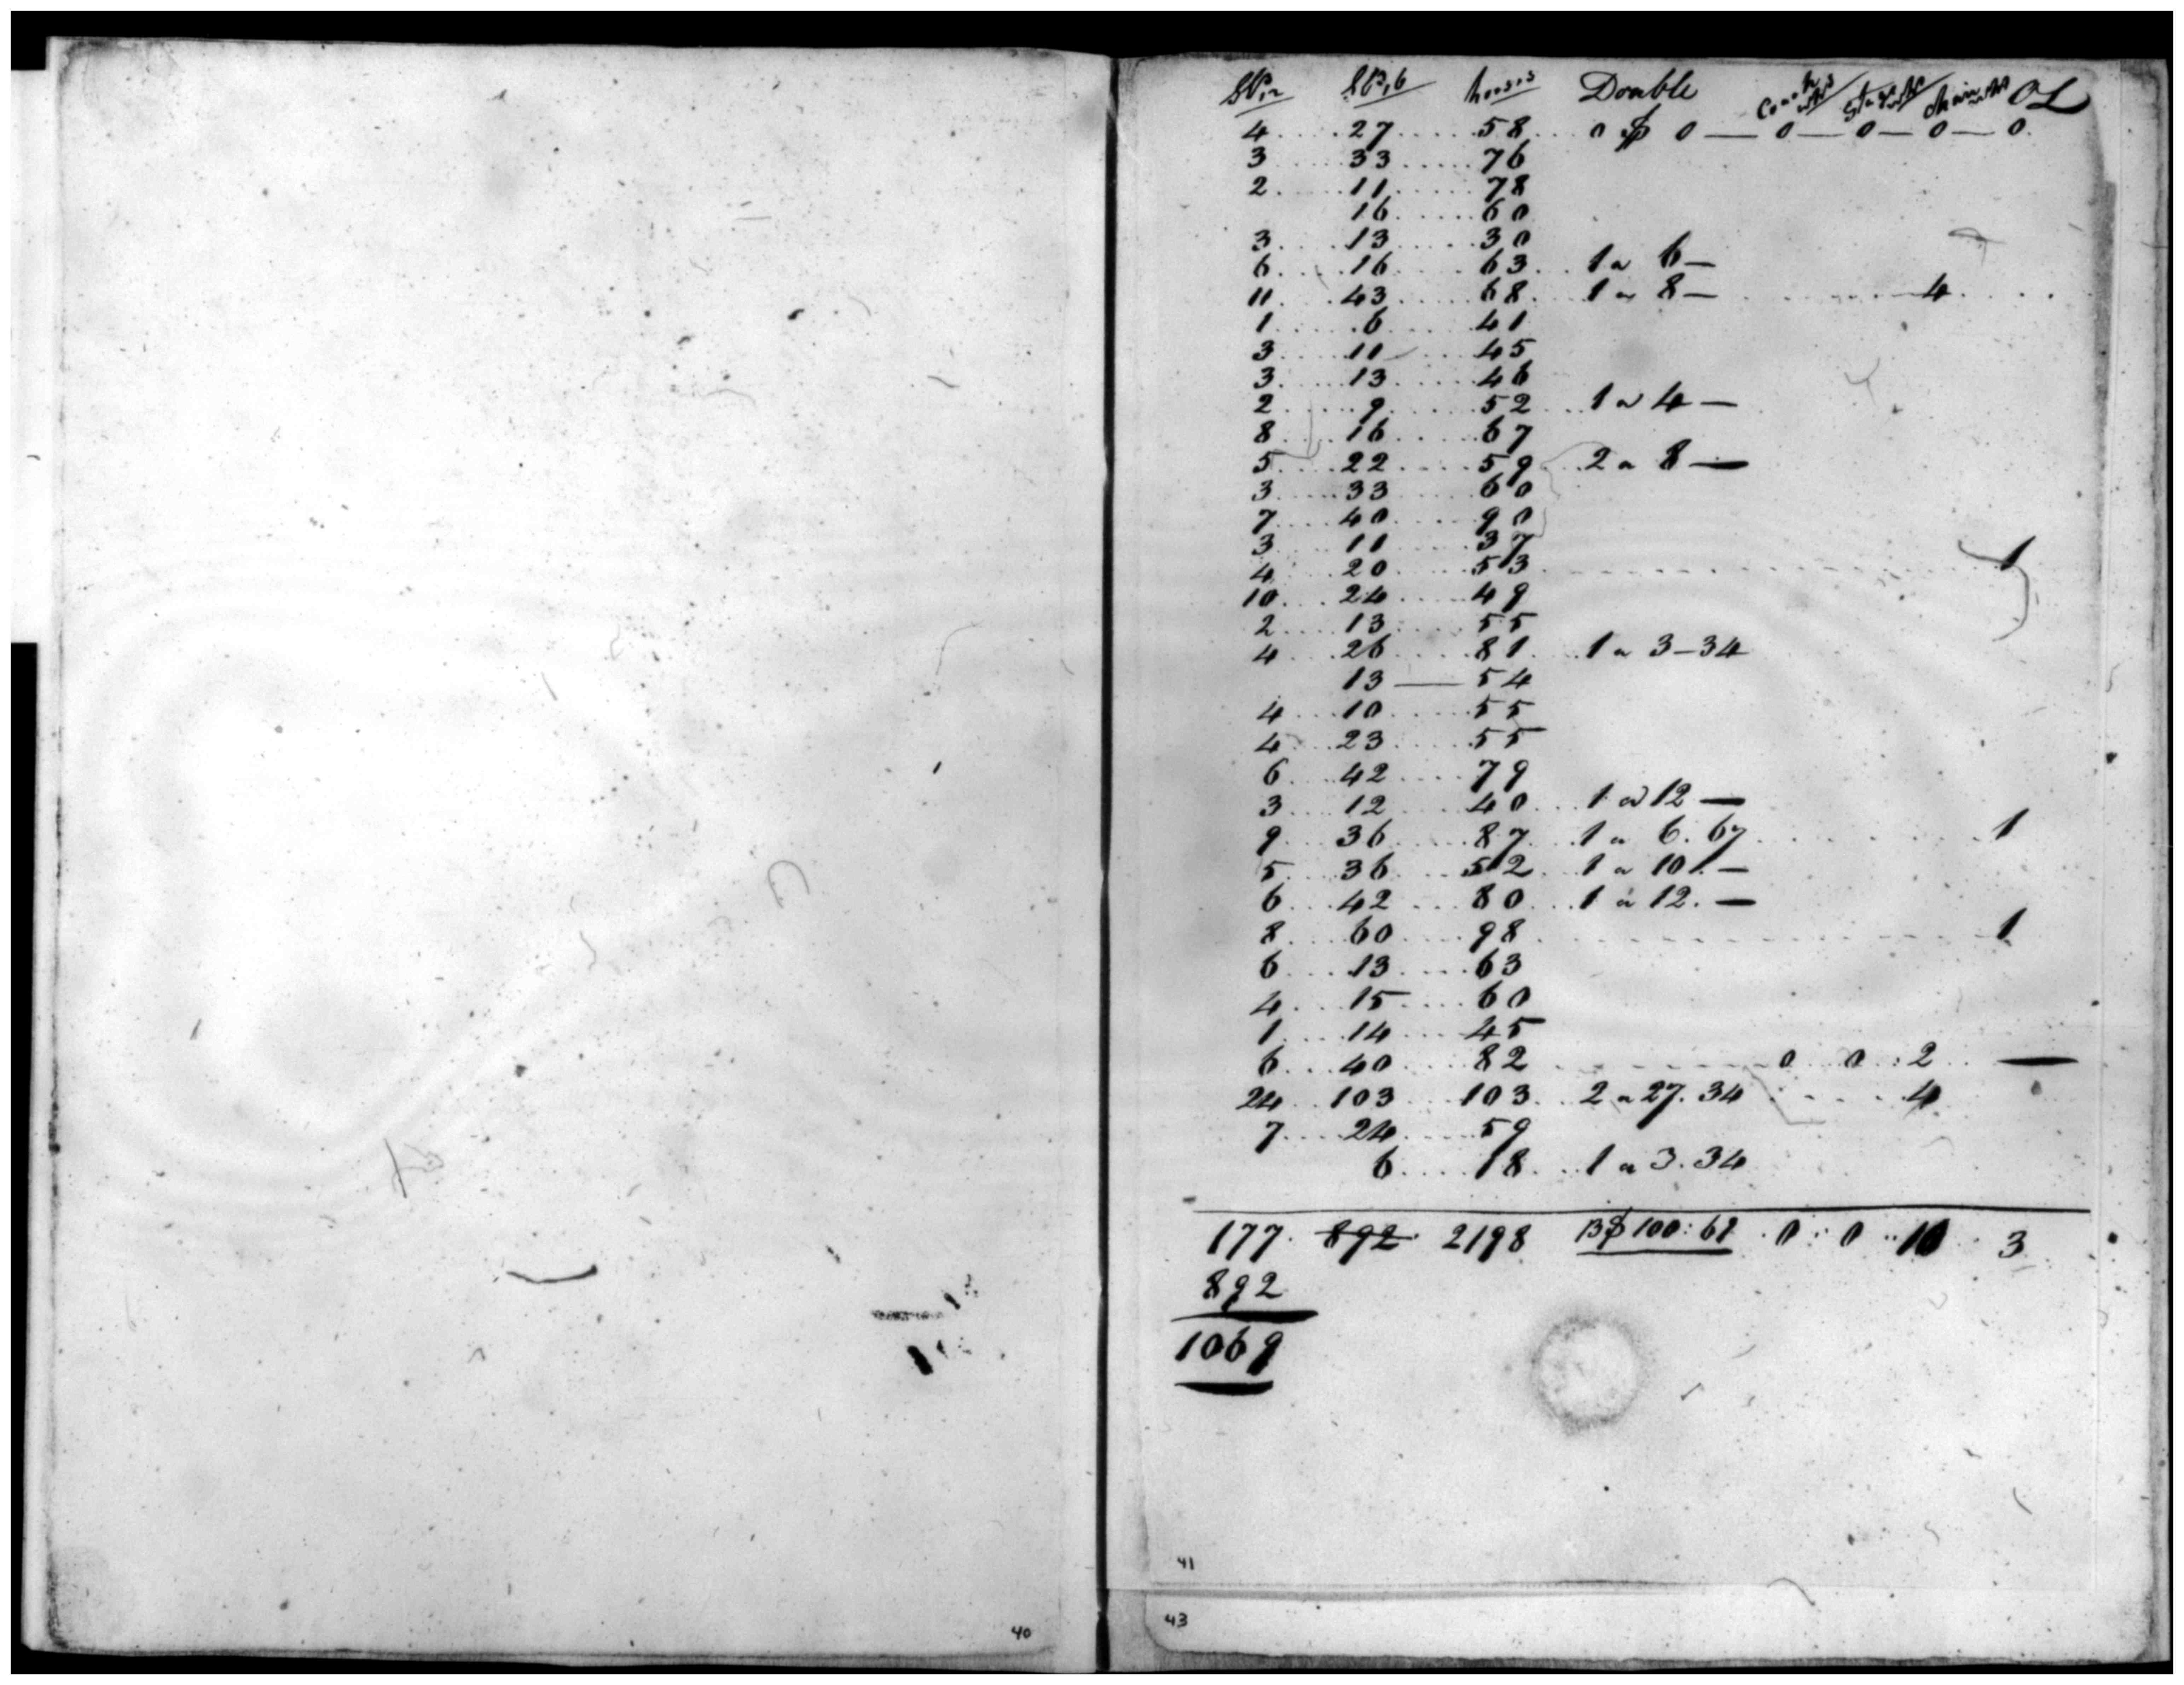 40
horses Double OL
4 27 58 0 $ 0 — 0 — 0 — 0 — 0
3 33 76
2 11 78
16 60
3 13 30
6 16 63 1 a 6 —
11 43 68 1 a 8 — 4
1 6 41
3 11 45
3 13 46
2 9 52 1 a 4 —
8 16 67
5 22 59 2 a 8 —
3 33 60
7 40 90
3 11 37
4 20 53 1
10 24 49
2 13 55
4 26 81 1 a 3-34
13 — 54
4 10 55
4 23 55
6 42 79
3 12 40 1 a 12 —
9 36 87 1 a 6.67 1
5 36 52 1 a 10. —
6 42 80 1 a 12. —
8 60 98 1
6 13 63
4 15 60
1 14 45
6 40 82 0 0 : 2 —
24 103 103 2 a 27.34 4
7 24 59
6 18 1 a 3.34
177 892 2198 13 $ 100:69 0 : 0 10 3
892
1069
41
43